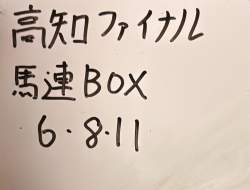 高知ファイナル
馬連BOX
6・8・11